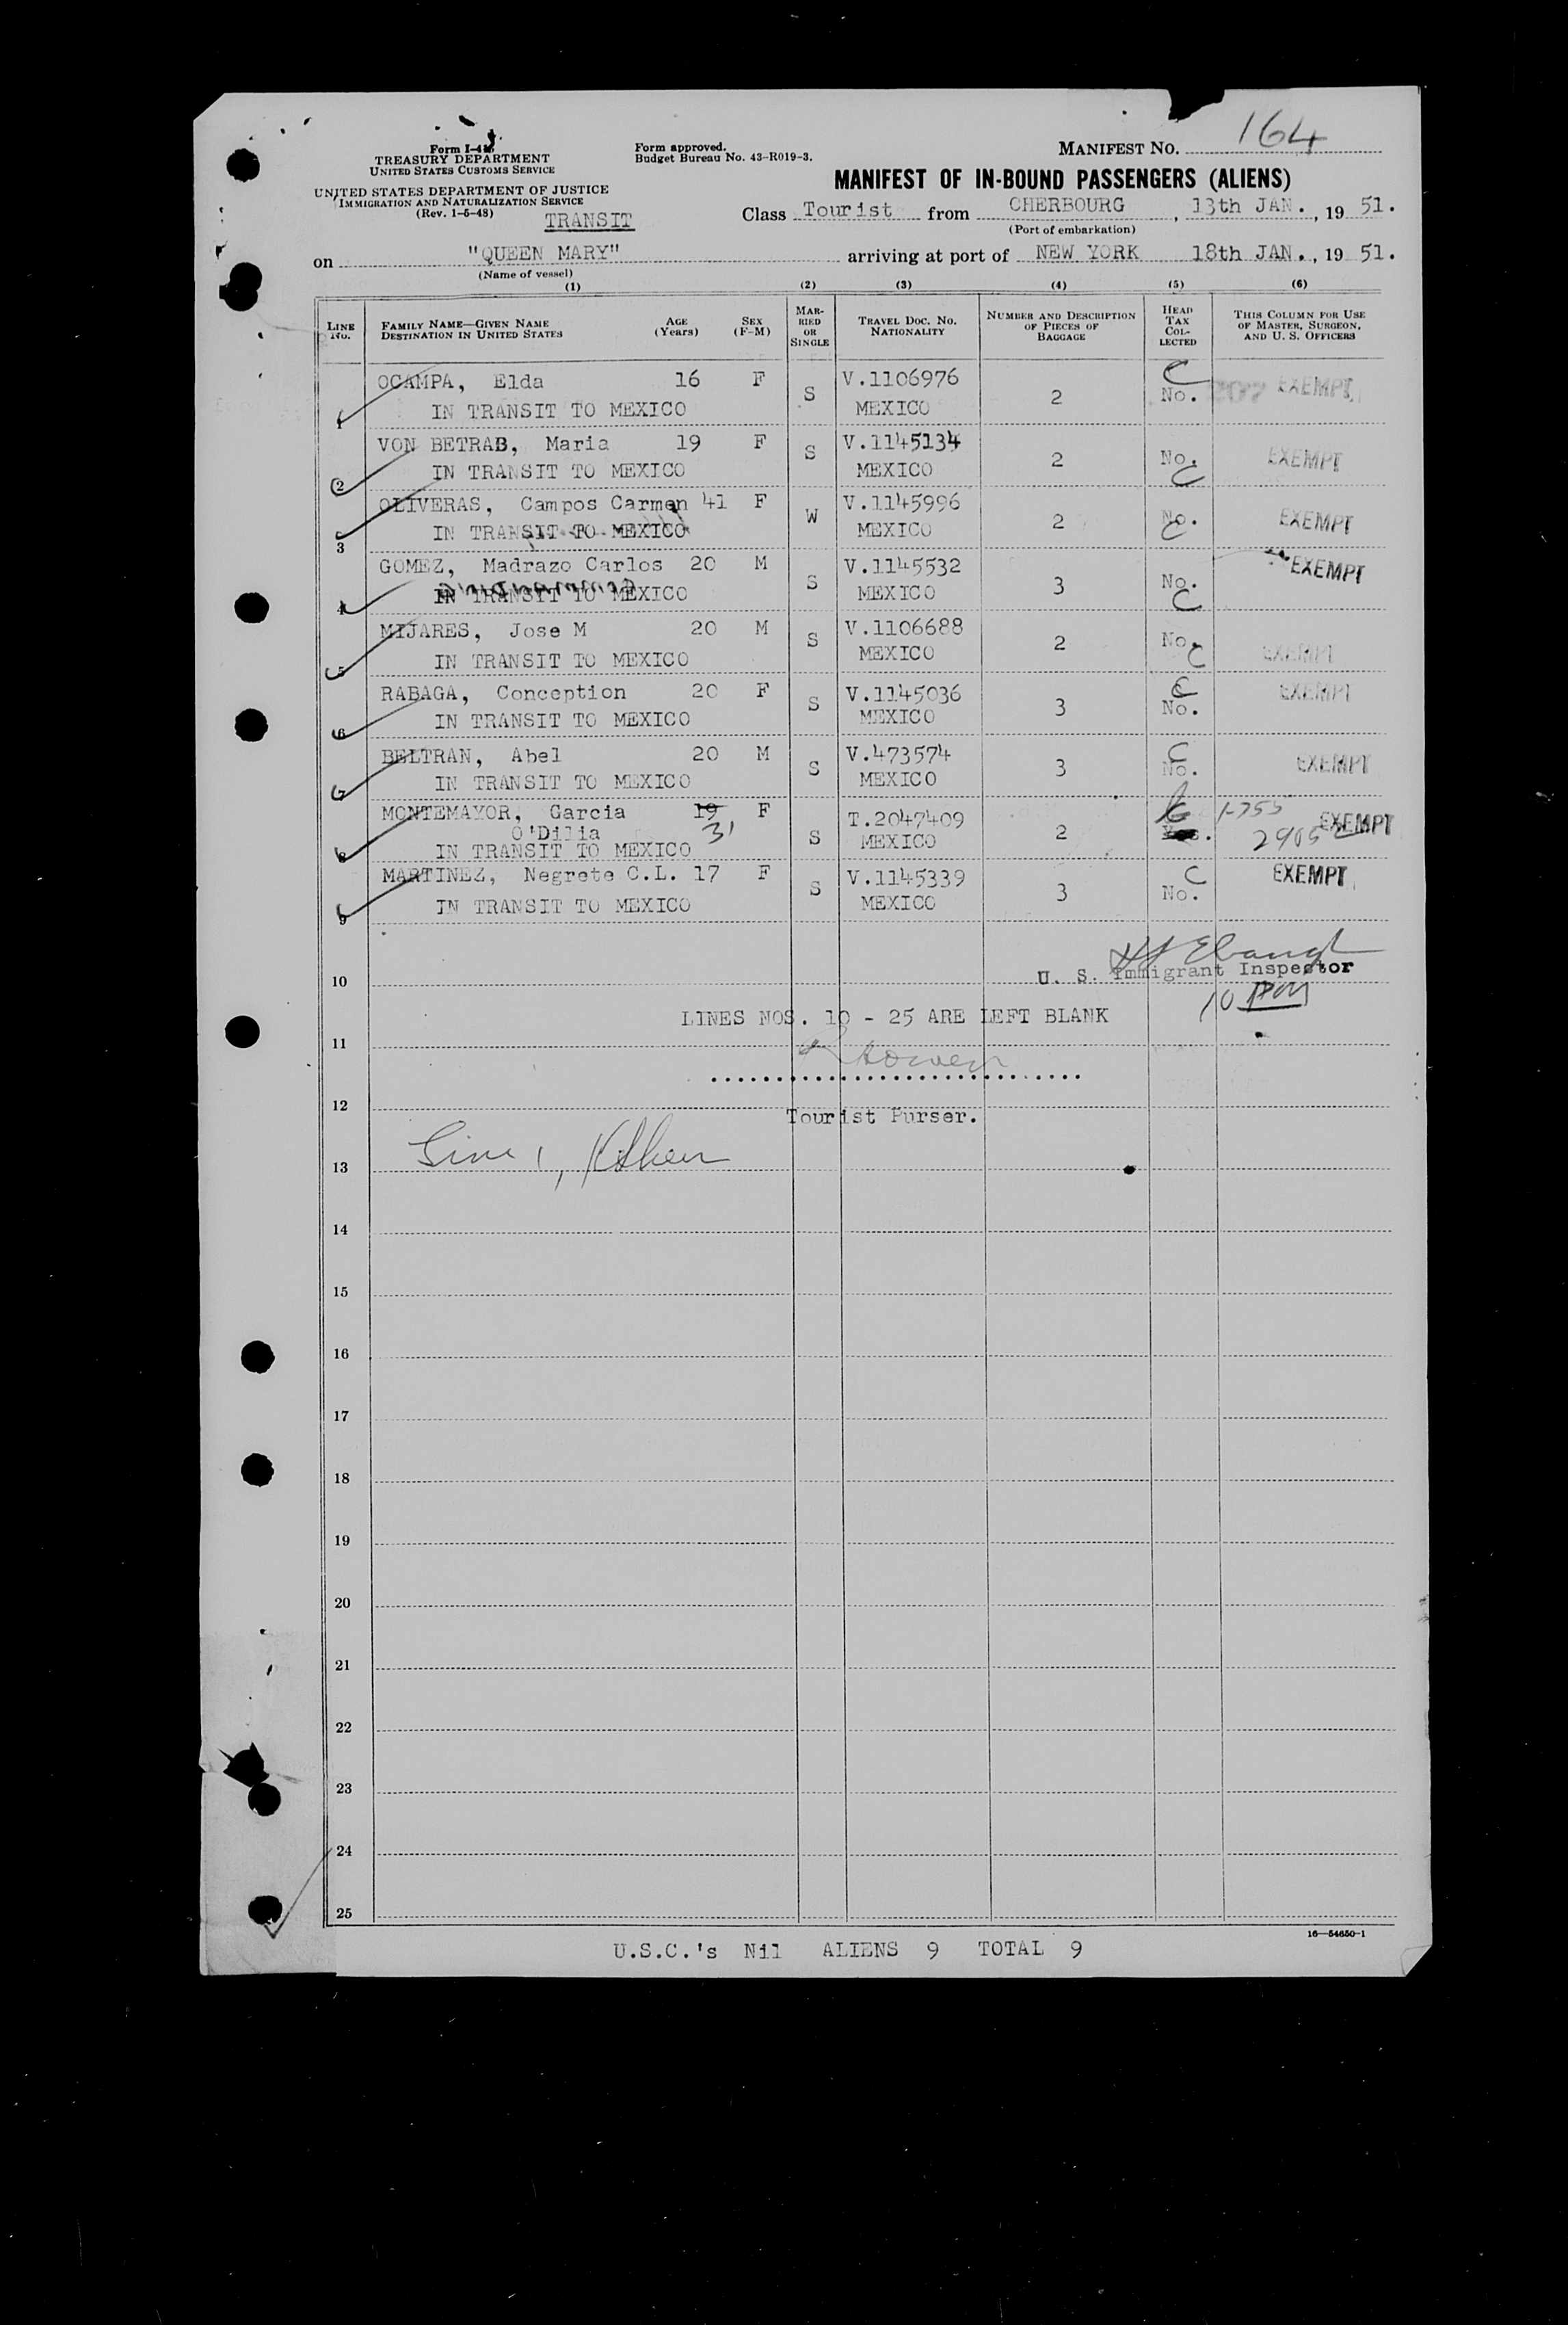 Form I-4
TREASURY DEPARTMENT
UNITED STATES CUSTOMS SERVICE
UNITED STATES DEPARTMENT OF JUSTICE
IMMIGRATION AND NATURALIZATION SERVICE
(Rev. 1-5-48)
TRANSIT
Form approved.
Budget Bureau No. 43-R019-3.
MANIFEST NO. 164
MANIFEST OF IN-BOUND PASSENGERS (ALIENS)
Class Tourist from CHERBOURG, 13th JAN., 19 51.
(Port of embarkation)
on "QUEEN MARY" arriving at port of NEW YORK 18th JAN., 19 51.
(Name of vessel)
(1) (2) (3) (4) (5) (6)
LINE NO.
FAMILY NAME—GIVEN NAME
DESTINATION IN UNITED STATES
AGE (Years)
SEX (F-M)
MARRIED OR SINGLE
TRAVEL DOC. NO. NATIONALITY
NUMBER AND DESCRIPTION OF PIECES OF BAGGAGE
HEAD TAX COLLECTED
THIS COLUMN FOR USE OF MASTER, SURGEON, AND U. S. OFFICERS
1 OCAMPA, Elda 16 F S V.1106976 2 C No. EXEMPT
IN TRANSIT TO MEXICO MEXICO
2 VON BETRAB, Maria 19 F S V.1145134 2 No. C EXEMPT
IN TRANSIT TO MEXICO MEXICO
3 OLIVERAS, Campos Carmen 41 F W V.1145996 2 No. C EXEMPT
IN TRANSIT TO MEXICO MEXICO
4 GOMEZ, Madrazo Carlos 20 M S V.1145532 3 No. C EXEMPT
IN TRANSIT TO MEXICO MEXICO
5 MIJARES, Jose M 20 M S V.1106688 2 No. C EXEMPT
IN TRANSIT TO MEXICO MEXICO
6 RABAGA, Conception 20 F S V.1145036 3 C No. EXEMPT
IN TRANSIT TO MEXICO MEXICO
7 BELTRAN, Abel 20 M S V.473574 3 C No. EXEMPT
IN TRANSIT TO MEXICO MEXICO
8 MONTEMAYOR, Garcia 19 F S T.2047409 2 1-755 EXEMPT
O'Dilia 31
IN TRANSIT TO MEXICO MEXICO
9 MARTINEZ, Negrete C.L. 17 F S V.1145339 3 C No. EXEMPT
IN TRANSIT TO MEXICO MEXICO
10 U. S. Immigrant Inspector
LINES NOS. 10 - 25 ARE LEFT BLANK
11
12
Tourist Purser.
13 Line 1,
14
15
16
17
18
19
20
21
22
23
24
25
16—54650-1
U.S.C.'s Nil ALIENS 9 TOTAL 9